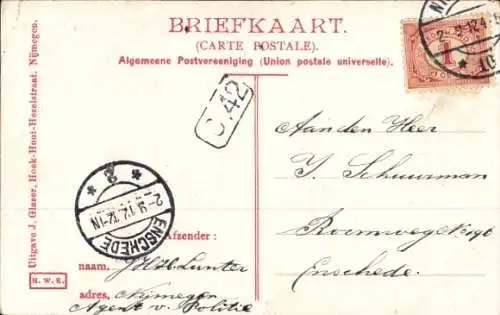 BRIEFKAART.
(CARTE POSTALE).
Algemeene Postvereeniging (Union postale universelle).
Uitgave J. Glaser, Hoek-Hout-Hezelstraat. Nijmegen.
H. W. E.
C.42
1
2-9-12.4-5
Aan den Heer
J. Schuurman
Roomweg No 196
Enschede.
2
2-9.12.11-12.N
ENSCHEDE
Afzender :
naam, J.H.H. Lunter
adres, Nijmegen
Agent v. Politie